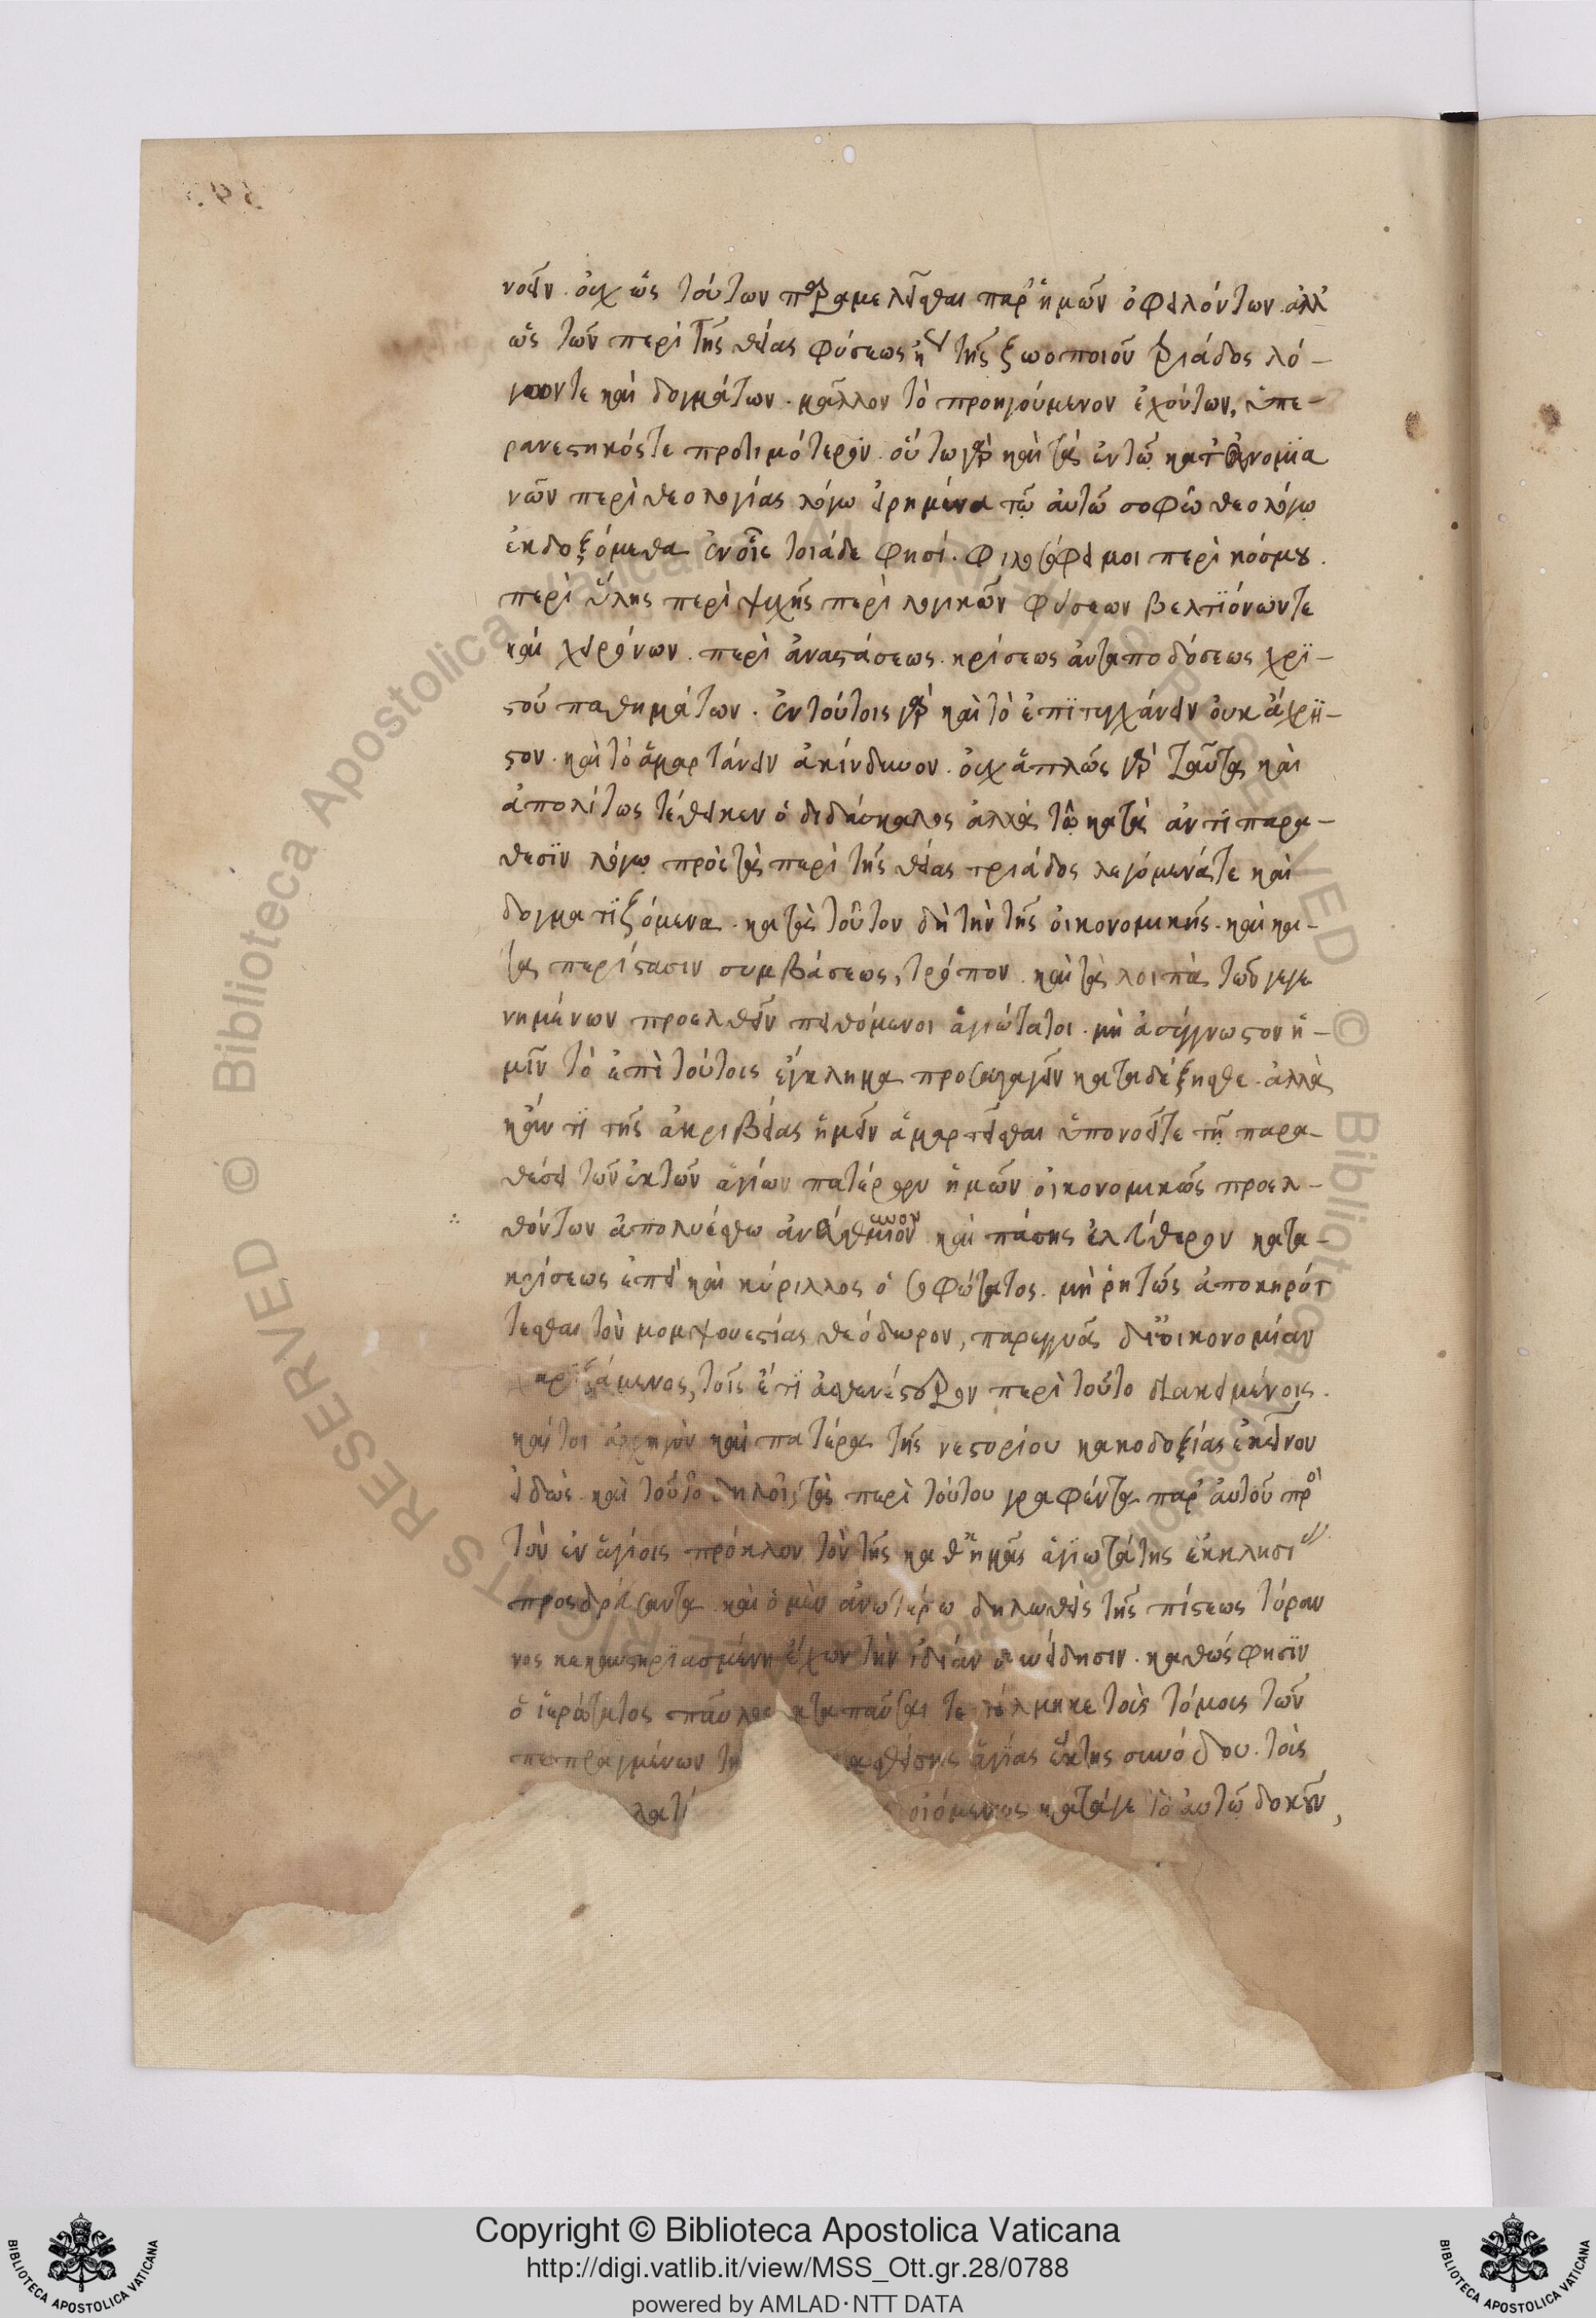 νοεῖν. οὐχ ὡς τούτων παραμελεῖσθαι παρ' ἡμῶν ὀφειλόντων. ἀλλ'
ὡς τῶν περὶ τῆς θείας φύσεως καὶ τῆς ζωοποιοῦ τριάδος λό-
γων τε καὶ δογμάτων. μᾶλλον τὸ προηγούμενον ἐχόντων, ὑπε-
ρανεστηκός τε προτιμότερον. οὕτω γὰρ καὶ τὰ ἐν τῷ κατ' εὐνομϊα
νῶν περὶ θεολογίας λόγω εἰρημένα τῷ αὐτῶ σοφῶ θεολόγω
ἐκδοξόμεθα ἐν οἷς τοιάδε φησί. φιλοσόφει μοι περὶ κόσμου.
περὶ ὕλης περὶ ψυχῆς περὶ λογικῶν φύσεων βελτϊόνων τε
καὶ χειρόνων. περὶ ἀναστάσεως. κρίσεως ἀνταποδόσεως χρϊ-
στοῦ παθημάτων. ἐν τούτοις γὰρ καὶ τὸ ἐπϊτυγχάνειν οὐκ ἄχρη-
στον. καὶ τὸ ἁμαρτάνειν ἀκίνδυνον. οὐχ ἁπλῶς γὰρ ταῦτα καὶ
ἀπολίτως τέθεικεν ὁ διδάσκαλος ἀλλὰ τῷ κατὰ ἀντϊπαρα-
θεσϊν λόγω πρὸς τὰ περὶ τῆς θείας τριάδος λεγόμενά τε καὶ
δογματϊζόμενα. κατὰ τοῦτον δὴ τὴν τῆς οἰκονομικῆς. καὶ κα-
τα περίστασιν συμβάσεως, τρόπον. καὶ τὰ λοιπὰ τῶν γεγε
νημένων προελθεῖν πειθόμενοι ἁγιώτατοι. μὴ ἀσύγγνωστον ἡ-
μῖν τὸ ἐπὶ τούτοις ἔγκλημα προσαγαγεῖν καταδέξησθε. ἀλλὰ
κἄν τϊ τῆς ἀκριβείας ἡμῖν ἁμαρτεῖσθαι ὑπονοεῖτε τῇ παρα-
θέσει τῶν ἐκ τῶν ἁγίων πατέρων ἡμῶν οἰκονομικῶς προελ-
θόντων ἀπολυέσθω καὶ πάσης ἐλεύθερον κατα-
κρίσεως ἐπεὶ καὶ κύριλλος ὁ σοφώτατος. μὴ ῥητῶς ἀποκηρύτ
τεσθαι τὸν μομψουεστίας θεόδωρον, παρεγγυᾶ δι' οἰκονομίαν
χαριζάμενος, τοῖς ἔτϊ ἀσθενέστερον περὶ τοῦτο διακειμένοις.
καίτοι ἀρχηγὸν καὶ πατέρα τῆς νεστορίου κακοδοξίας ἐκεῖνου
εἰδώς. καὶ τοῦτο δηλοῖ, τὰ περὶ τούτου γραφέντα παρ' αὐτοῦ πρὸ
τὸν ἐν ἁγίοις πρόκλον τὸν τῆς καθ' ἡμᾶς ἁγιωτάτης ἐκκλησι
προεδρεύσαντα. καὶ ὁ μὲν ἀνωτέρω δηλωθεὶς τῆς πίστεως τύραν
νος κεκαυστηρϊασμένην ἔχων τὴν ἰδίαν συνείδησιν. καθώς φησϊν
ὁ ἱερώτατος παῦλος κατακαῦσαι τετόλμηκε τοὺς τόμους τῶν
πεπραγμένων τῆ ἁγίας ἕκτης συνόδου. τοὺς
οἰόμενος κατά γε τὸ αὐτῶ δοκοῦν,
Copyright © Biblioteca Apostolica Vaticana
http://digi.vatlib.it/view/MSS_Ott.gr.28/0788
powered by AMLAD·NTT DATA